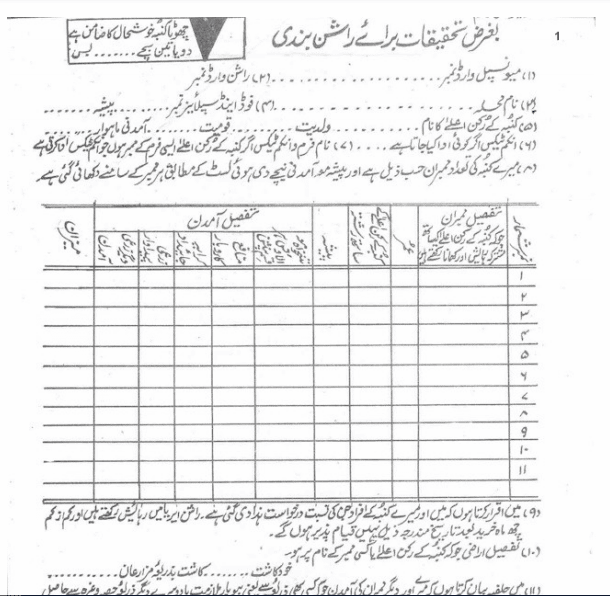 1
چھوٹا کنبہ خوشحال کا ضامن ہے
دو یا تین بچے ....... بس:
بغرض تحقیقات برائے راشن بندی
(۱) میونسپل وارڈ نمبر ........................ (۲) راشن وارڈ نمبر
(۳) نام محلہ ........................ (۴) فوڈ اینڈ سپلائیز نمبر ............ پیشہ .......
(۵) کنبہ کے رکن اعلےٰ کا نام ............ ولدیت ............ قومیت ........ آمدنی ماہوار .......
(۶) انکم ٹیکس اگر کوئی ادا کیا جاتا ہے .... (۷) نام فرم و انکم ٹیکس اگر کنبہ کے رکن اعلےٰ ایسی فرم کے ممبر ہوں جو انکم ٹیکس ادا کرتی ہے
(۸) میرے کنبہ کی تعداد ممبران حسب ذیل ہے اور پیشہ معہ آمدنی نیچے دی ہوئی لسٹ کے مطابق ہر ممبر کے سامنے دکھائی گئی ہے
نمبر شمار
تفصیل ممبران
جو کہ کنبہ کے رکن اعلےٰ کے ساتھ
رہائش اور کھانا رکھتے ہیں
عمر
کنبے کے رکن اعلےٰ کے
ساتھ رشتہ
پیشہ
تفصیل آمدن
تنخواہ
منافع
کاروبار
کرایہ
جائیداد
زرعی
پیداوار
دیگر
آمدن
میزان
۱
۲
۳
۴
۵
۶
۷
۸
۹
۱۰
۱۱
(۹) میں اقرار کرتا ہوں کہ میں اور میرے کنبہ کے افراد جن کی نسبت درخواست ہذا دی گئی ہے۔ راشن ایریا میں رہائش رکھتے ہیں اور کم و کم
چھ ماہ مزید بعد تاریخ مندرجہ ذیل یہیں قیام پذیر ہوں گے۔
(۱۰) تفصیل اراضی جو کہ کنبہ کے رکن اعلےٰ یا کسی ممبر کے نام پر ہو۔
خود کاشت ............ کاشت بذریعہ مزارعان ............
(۱۱) میں حلفیہ بیان کرتا ہوں کہ میری اور دیگر ممبران کی آمدن جو کسی بھی ذریعہ سے یعنی بیوپار